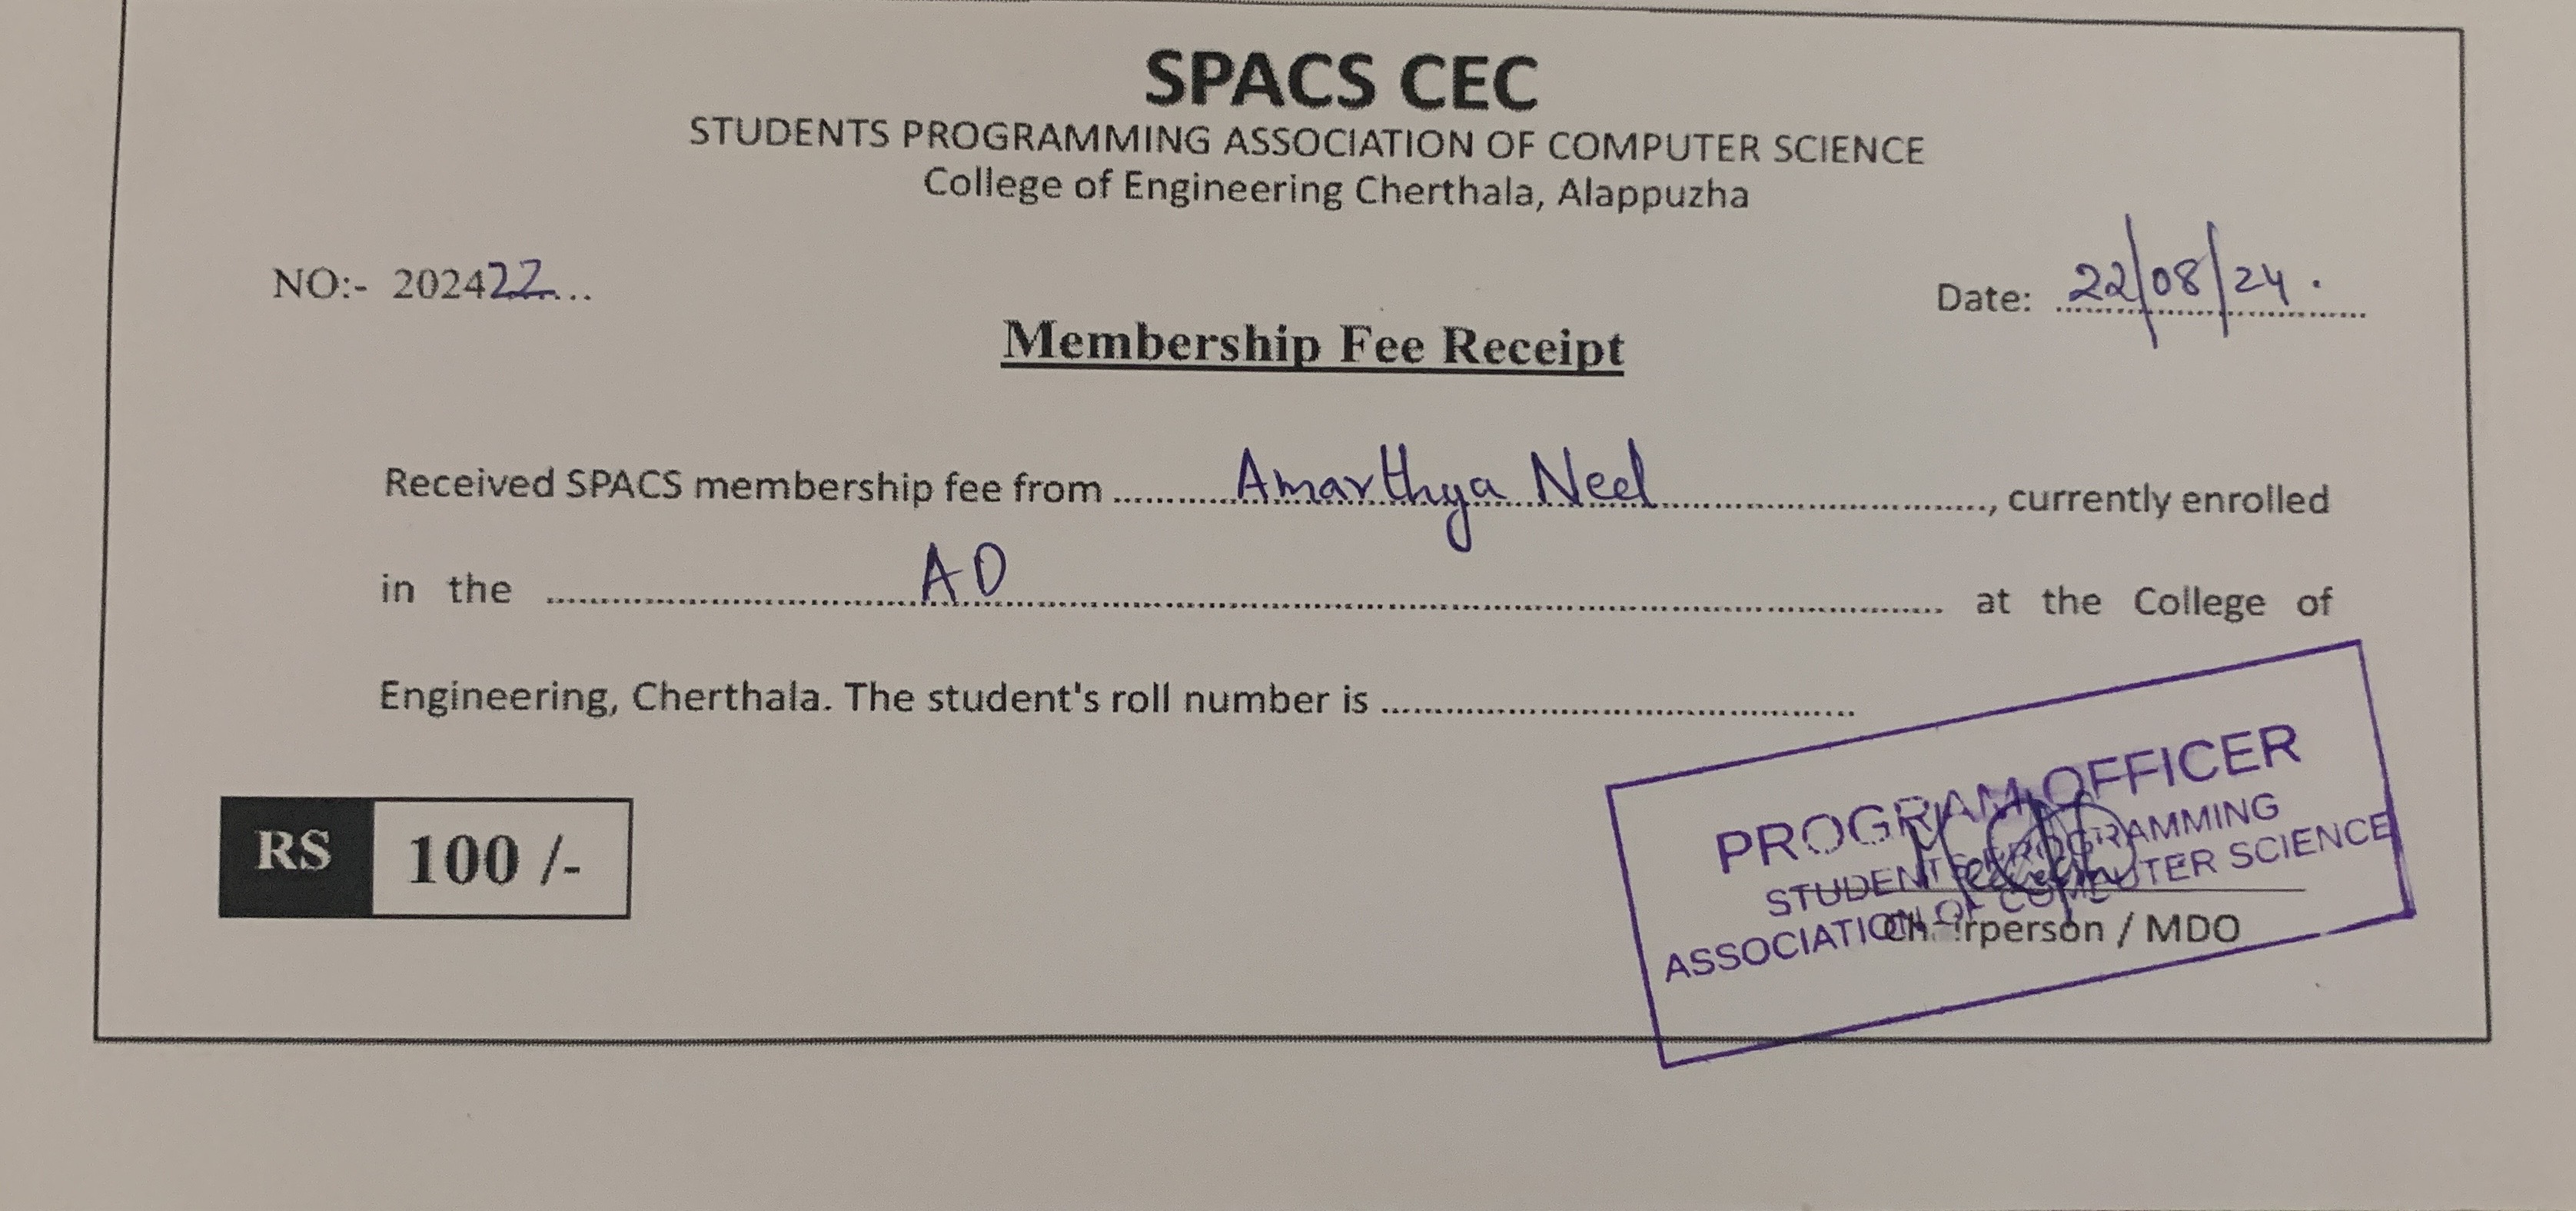 SPACS CEC
STUDENTS PROGRAMMING ASSOCIATION OF COMPUTER SCIENCE
College of Engineering Cherthala, Alappuzha
NO:- 202422...
Date: 22/08/24.
Membership Fee Receipt
Received SPACS membership fee from Amarthya Neel, currently enrolled
in the AD at the College of
Engineering, Cherthala. The student's roll number is
RS 100 /-
PROGRAM OFFICER
STUDENTS PROGRAMMING
ASSOCIATION OF COMPUTER SCIENCE
Chairperson / MDO